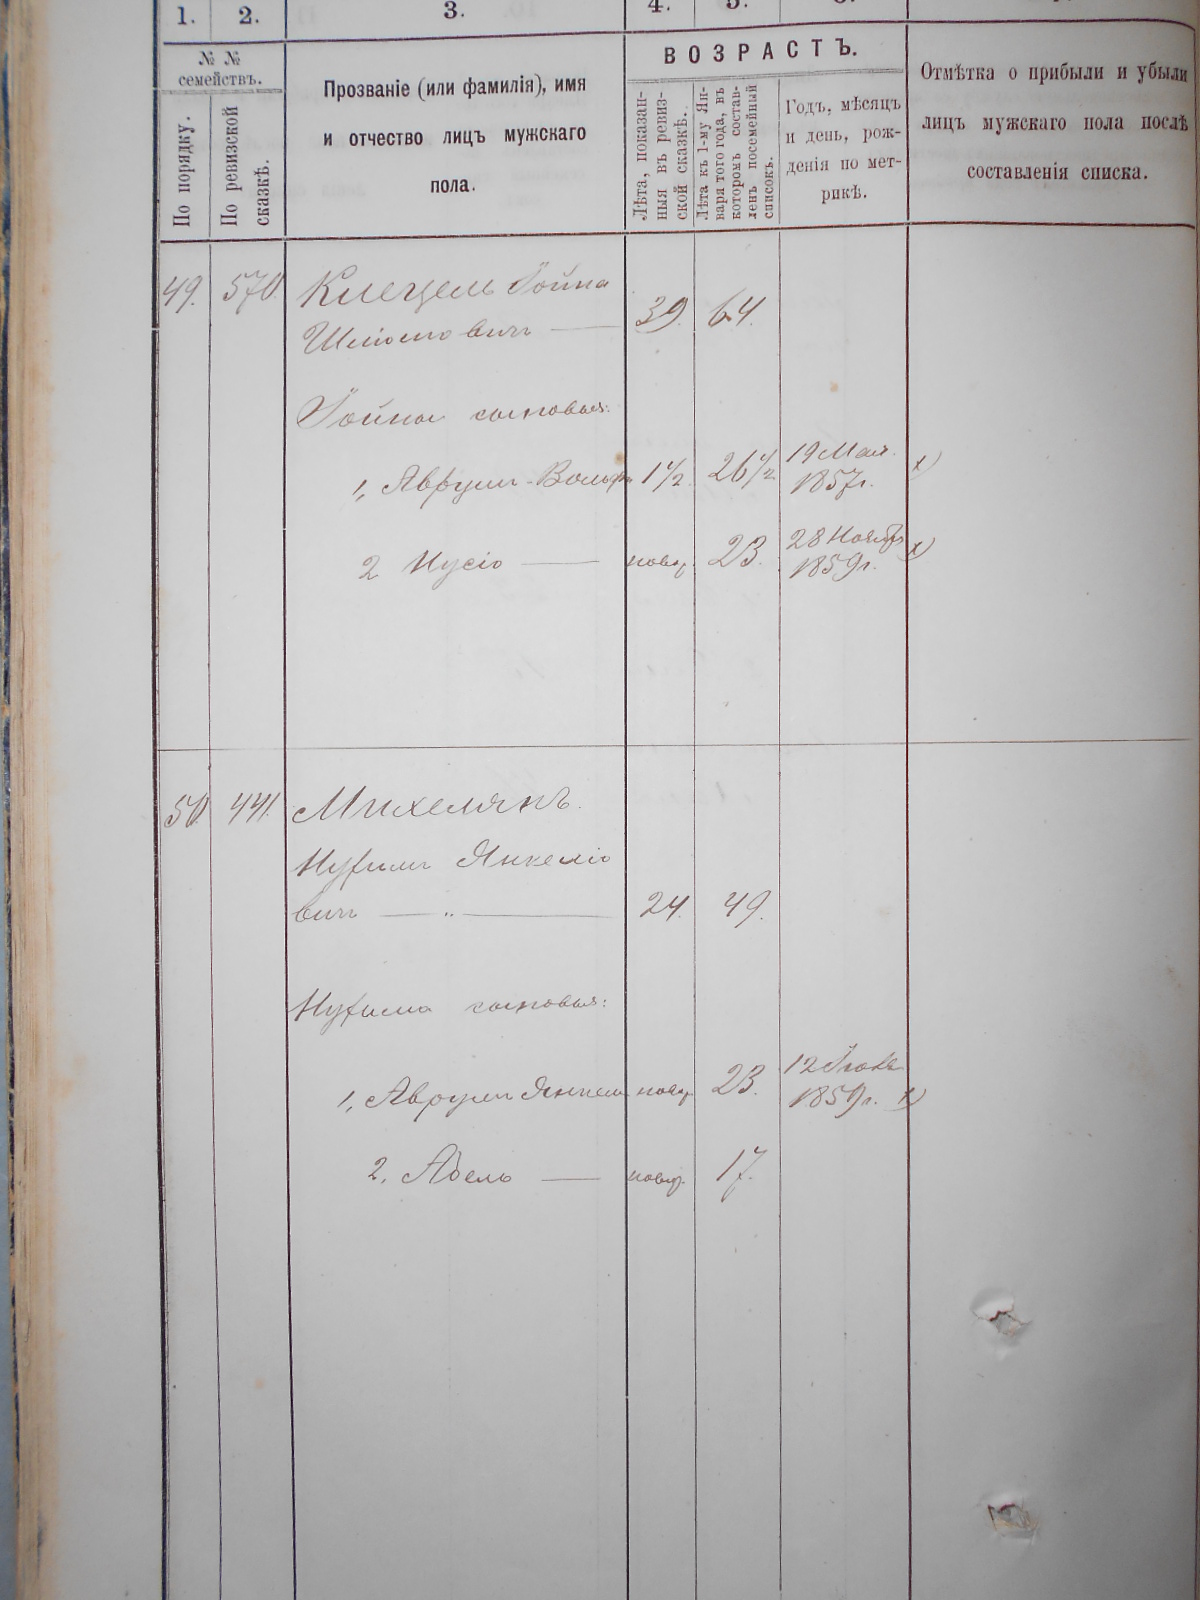 1. 2. 3. 4. 5.
№ № семействъ.
По порядку.
По ревизской сказкѣ.
Прозваніе (или фамилія), имя
и отчество лицъ мужскаго
пола.
ВОЗРАСТЪ.
Лѣта, показан-
ныя въ ревиз-
ской сказкѣ.
Лѣта къ 1-му Ян-
варя того года, въ
которомъ состав-
ленъ посемейный
списокъ.
Годъ, мѣсяцъ
и день, рож-
денія по мет-
рикѣ.
Отмѣтка о прибыли и убыли
лицъ мужскаго пола послѣ
составленія списка.
49. 570. Клецель Іойна
Шліомовичъ 39. 64.
Іойны сыновья:
1, Аврумъ-Вольфъ 1 1/2 26 1/2 19 Мая
1857г. х)
2 Нусіо новор 23. 28 Ноябр
1859г. х)
50 441. Михелянъ.
Нухимъ Янкеліо
вичъ 24. 49.
Нухима сыновья:
1, Аврумъ Янкель новор 23. 12
1859г. х)
2. Абель новор. 17.